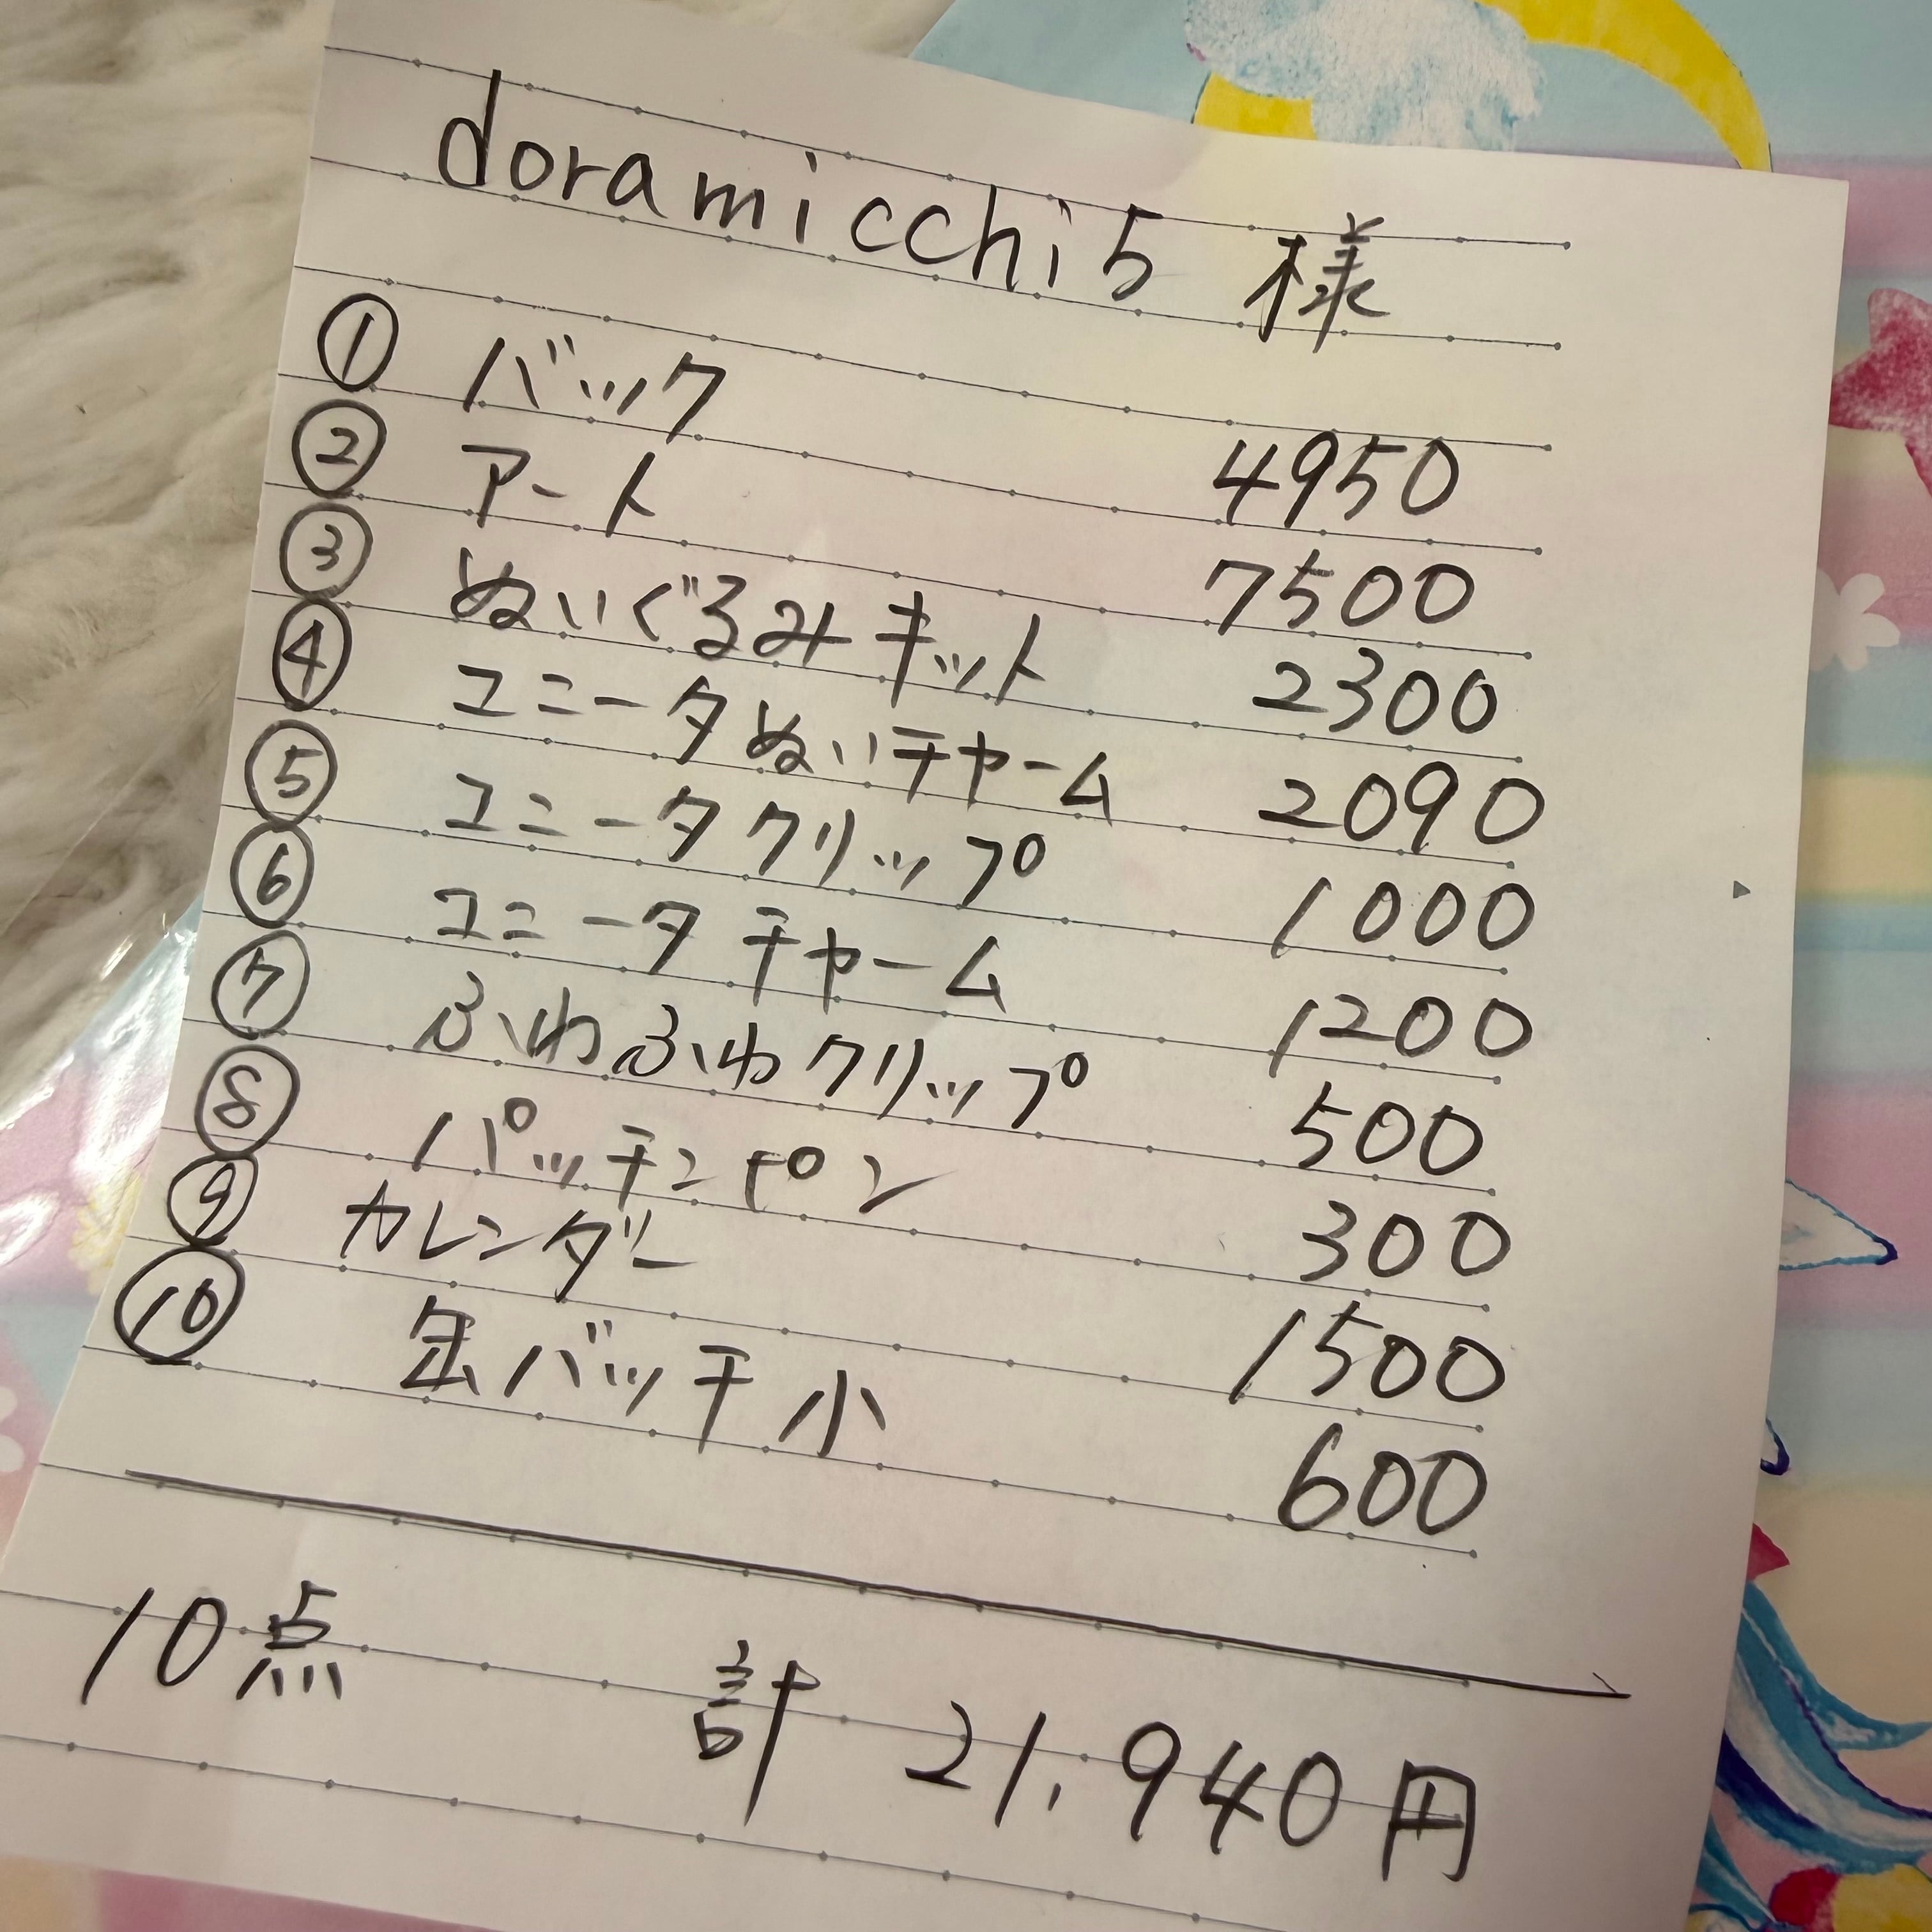 doramicchi5 様
① バック 4950
② アート 7500
③ ぬいぐるみキット 2300
④ ユニータぬいチャーム 2090
⑤ ユニータクリップ 1000
⑥ ユニータチャーム 1200
⑦ ふわふわクリップ 500
⑧ パッチンピン 300
⑨ カレンダー 1500
⑩ 缶バッチ小 600
10点 計 21,940円